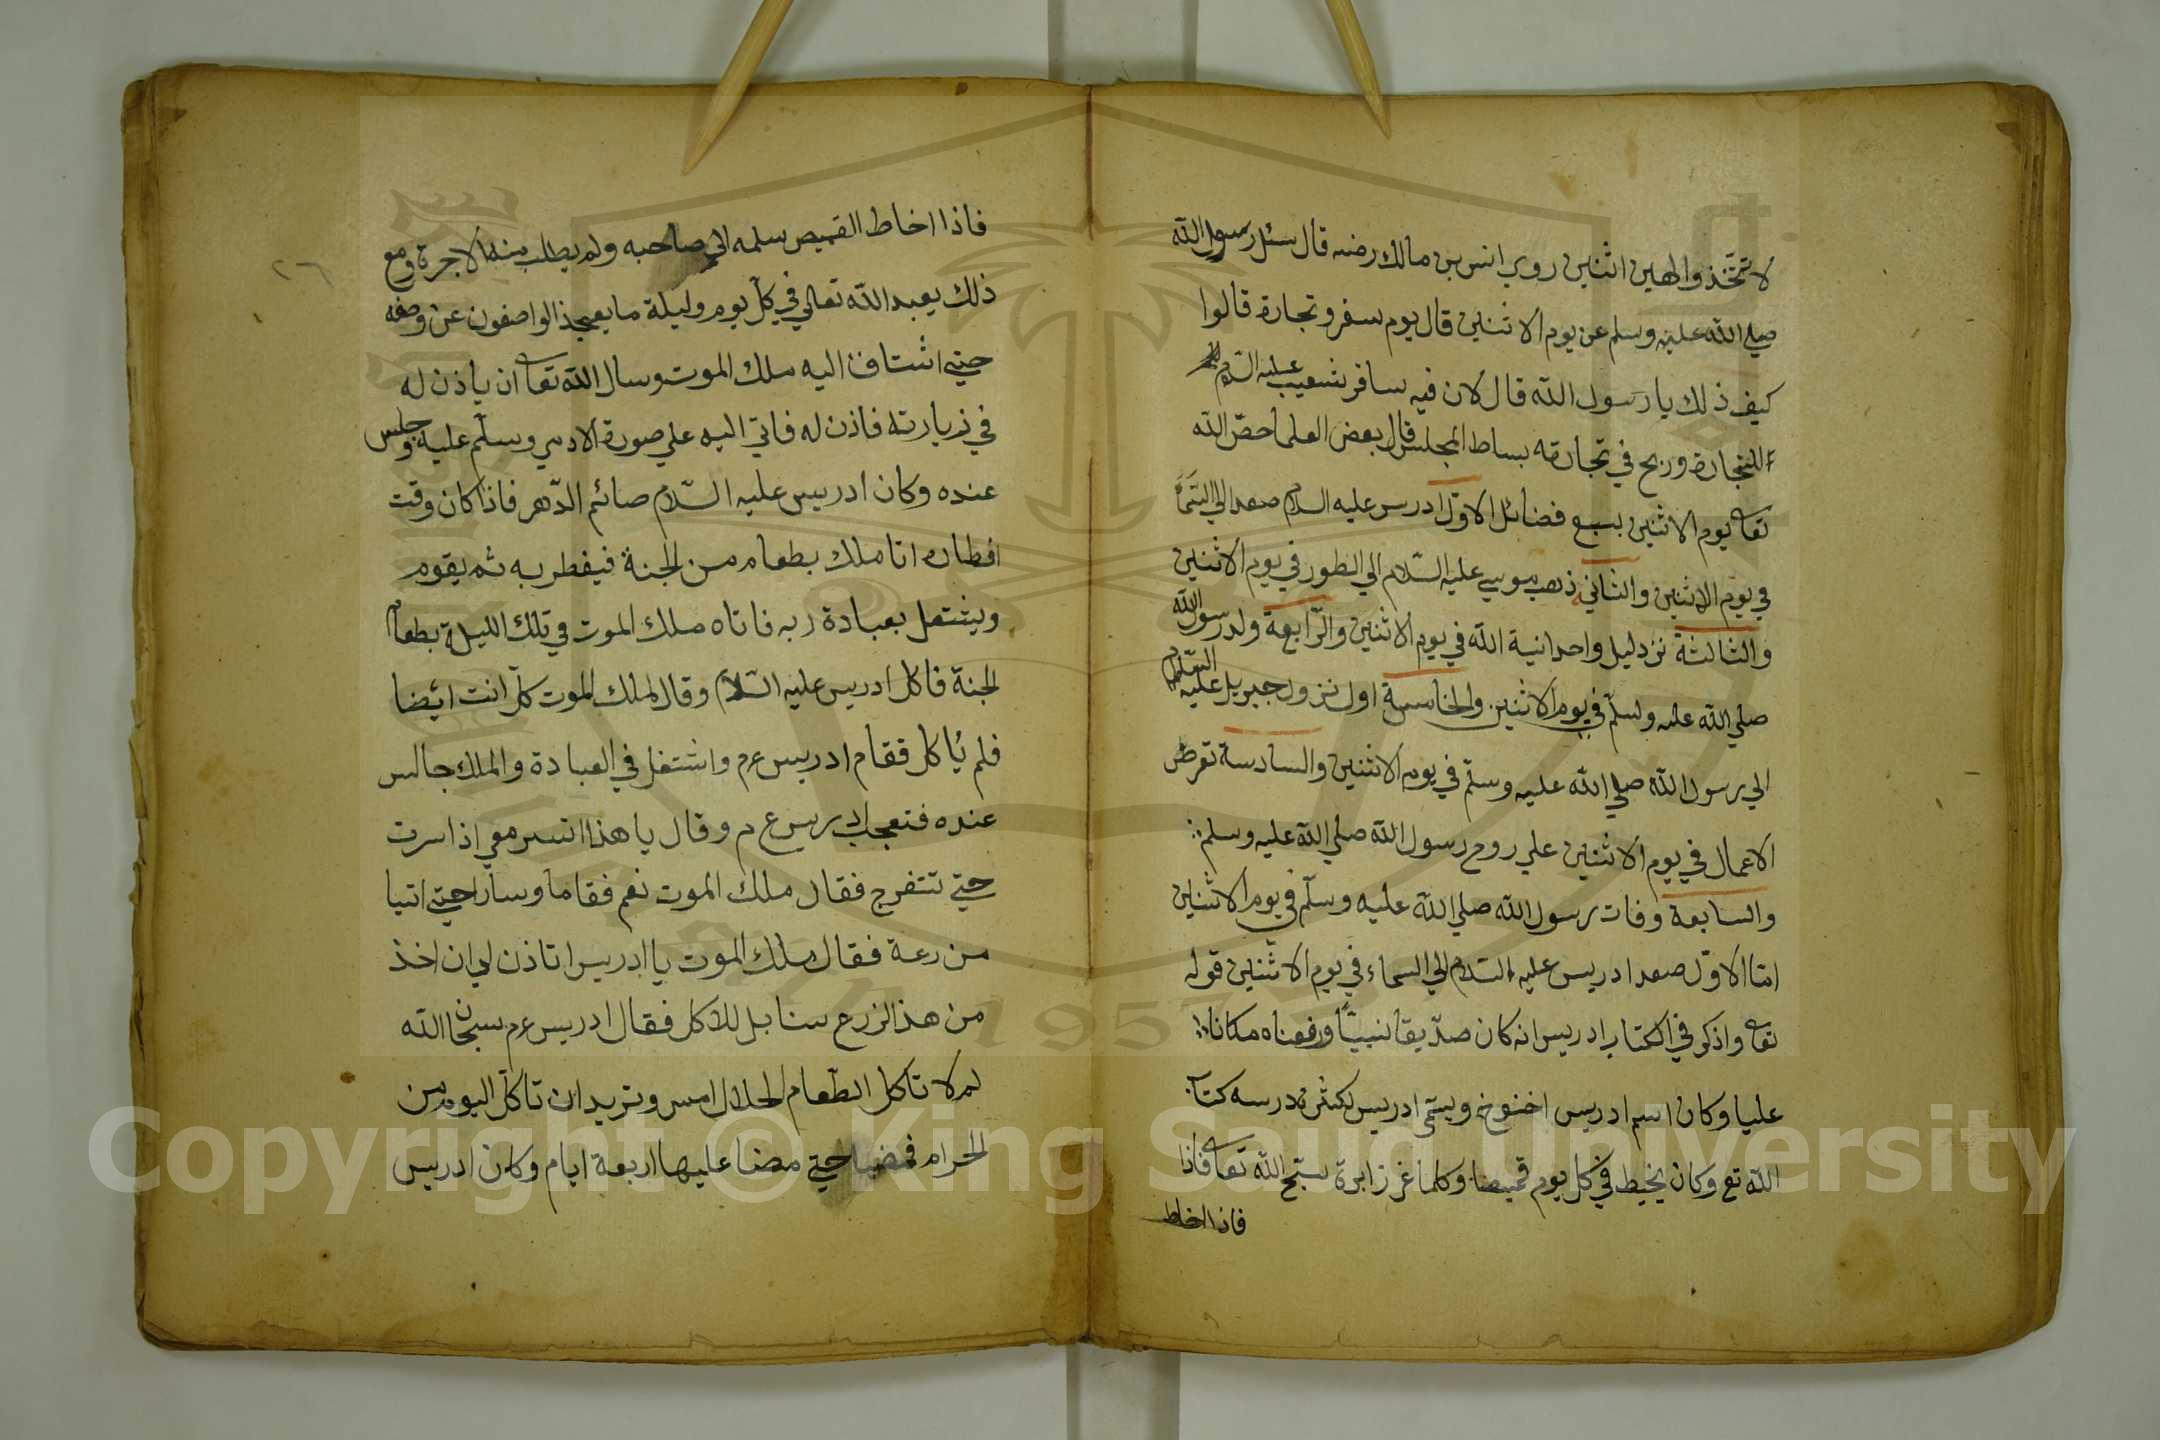 لا تتخذوا الهين اثنين روي انس بن مالك رضه قال سئل رسول الله
صلي الله عليه وسلم عن يوم الاثنين قال يوم سفر وتجارة قالوا
كيف ذلك يا رسول الله قال لان فيه سافر شعيب عليه السلام
للتجارة وربح في تجارته بساط المجلس قال بعض العلما خص الله
تعا يوم الاثنين بسبع فضائل الاول ادريس عليه السلام صعد الي السما
في يوم الاثنين والثاني ذهب موسي عليه السلام الي الطور في يوم الاثنين
والثالثة نز دليل واحدانية الله في يوم الاثنين والرابعة ولد رسول الله
صلي الله عليه وسلم في يوم الاثنين والخامسة اول نزول جبريل عليه السلم
الي رسول الله صلي الله عليه وسلم في يوم الاثنين والسادسة تعرض
الاعمال في يوم الاثنين علي روح رسول الله صلي الله عليه وسلم
والسابعة وفات رسول الله صلي الله عليه وسلم في يوم الاثنين
اما الاول صعد ادريس عليه السلام الي السماء في يوم الاثنين قوله
تعا واذكر في الكتاب ادريس انه كان صديقا نبيا ورفعناه مكانا
عليا وكان اسم ادريس اخنوخ ويسمي ادريس لكثرة درسه كتاب
الله تع وكان يخيط في كل يوم قميصا وكلما غرز ابرة يسبح الله تعا فاذا
فاذا اخاط
٢٦
فاذا اخاط القميص سلمه الي صاحبه ولم يطلب منه الاجرة ومع
ذلك يعبد الله تعالي في كل يوم وليلة ما يعجذ الواصفون عن وصفه
حتي اشتاق اليه ملك الموت وسال الله تعا ان ياذن له
في زيارته فاذن له فاتي اليه علي صورة الادمي وسلم عليه وجلس
عنده وكان ادريس عليه السلام صائم الدهر فاذا كان وقت
افطاره اتا ملك بطعام من الجنة فيفطر به ثم يقوم
ويشتغل بعبادة ربه فاتاه ملك الموت في تلك الليلة بطعام
الجنة فاكل ادريس عليه السلام وقال لملك الموت كل انت ايضا
فلم ياكل فقام ادريس ع م واشتغل في العبادة والملك جالس
عنده فتعجب ادريس ع م وقال يا هذا اتسر معي اذا سرت
حتي تتفرج فقال ملك الموت نعم فقاما وسارا حتي اتيا
من رعة فقال ملك الموت يا ادريس اتاذن لي ان اخذ
من هذ الزرع سنابل للاكل فقال ادريس ع م سبحان الله
لم لا تاكل الطعام الحلال امس وتريد ان تاكل اليوم من
الحرام فمضيا حتي مضا عليها اربعة ايام وكان ادريس
Copyright © King Saud University
1957